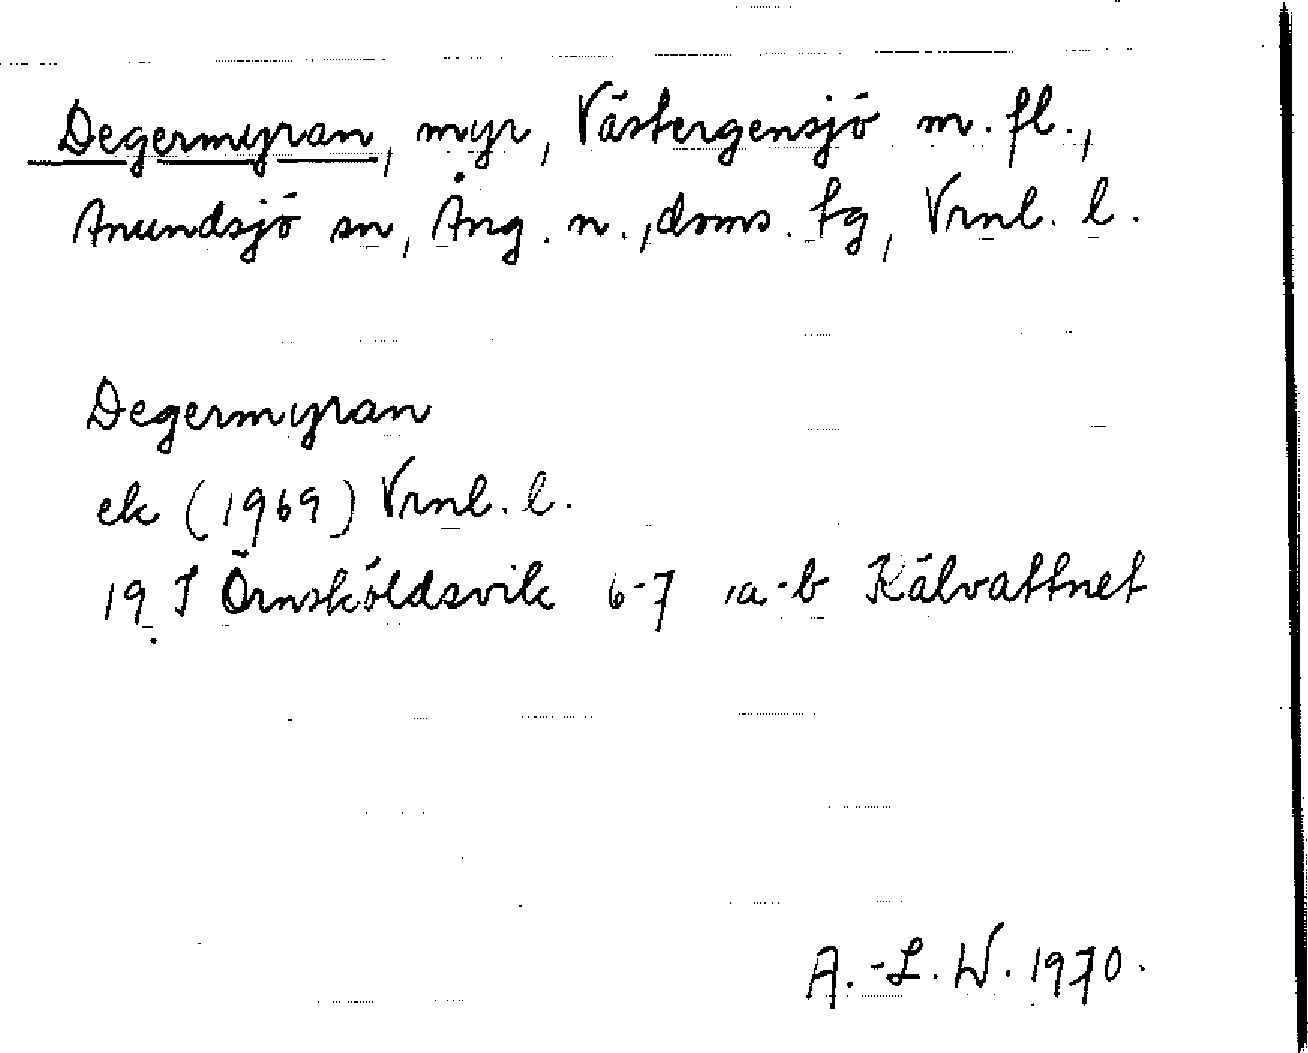 Degermyran, myr, Västergensjö m. fl.,
Anundsjö sn, Ång. n., doms. fg, Vrnl. l.
Degermyran
ek (1969) Vrnl. l.
19 I Örnsköldsvik 6-7 a-b Kälvattnet
A.-L. W. 1970.